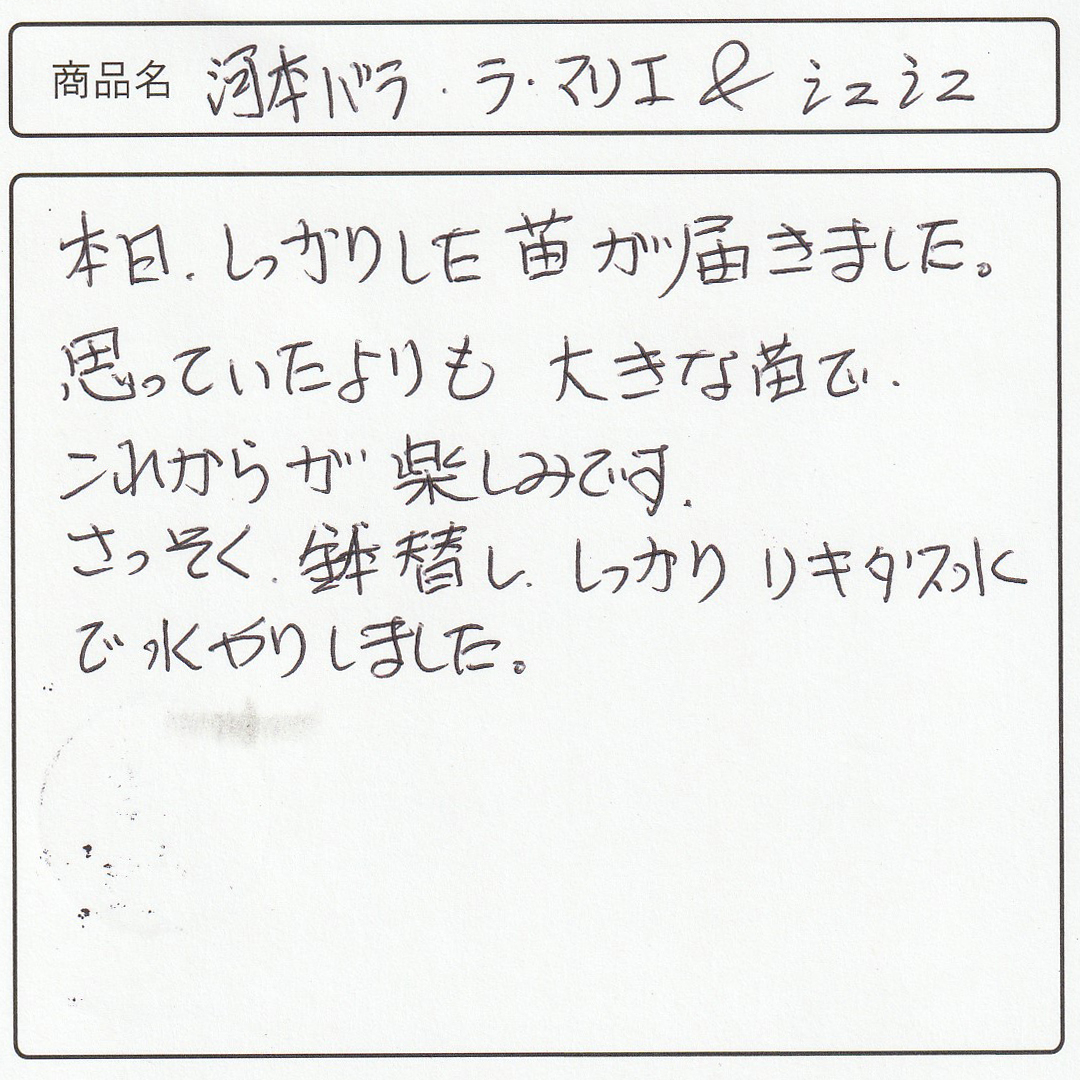 商品名 河本バラ・ラ・マリエ & シュシュ
本日、しっかりした苗が届きました。
思っていたよりも 大きな苗で、
これからが 楽しみです。
さっそく、鉢替し、しっかり リキダス水
で水やりしました。